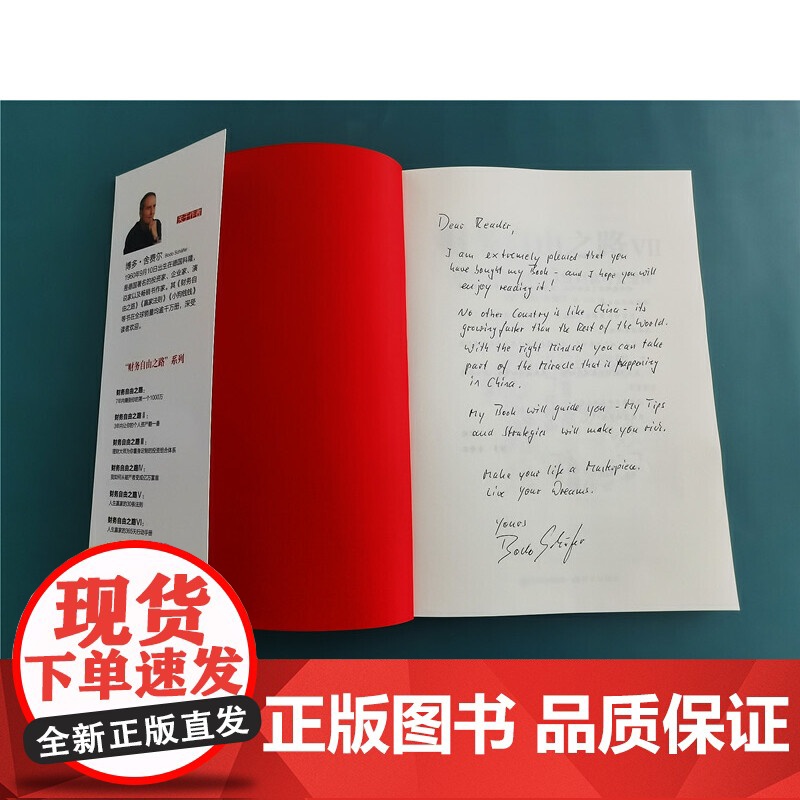 博多·舍费尔 Bodo Schäfer
1960年9月10日出生在德国科隆,
是德国著名的投资家、企业家、演
说家以及畅销书作家。其《财务自
由之路》《赢家法则》《小狗钱钱》
等书在全球销量均逾千万册,深受
读者欢迎。
“财务自由之路”系列
财务自由之路:
7年内赚到你的第一个1000万
财务自由之路Ⅱ:
3年内让你的个人资产翻一番
财务自由之路Ⅲ:
理财大师为你量身定制的投资组合体系
财务自由之路Ⅳ:
我如何从破产者变成亿万富翁
财务自由之路Ⅴ:
人生赢家的30条法则
财务自由之路Ⅵ:
人生赢家的365天行动手册
Dear Reader,
I am extremely pleased that you
have bought my Book - and I hope you will
enjoy reading it!
No other Country is like China - its
growing faster than the Rest of the World.
With the right Mindset you can take
part of the Miracle that is happening
in China.
My Book will guide you - My Tips
and Strategies will make you rich.
Make your life a Masterpiece.
Live Your Dreams.
Yours
Bodo Schäfer
现货
全新正版直发
正版图书 品质保证